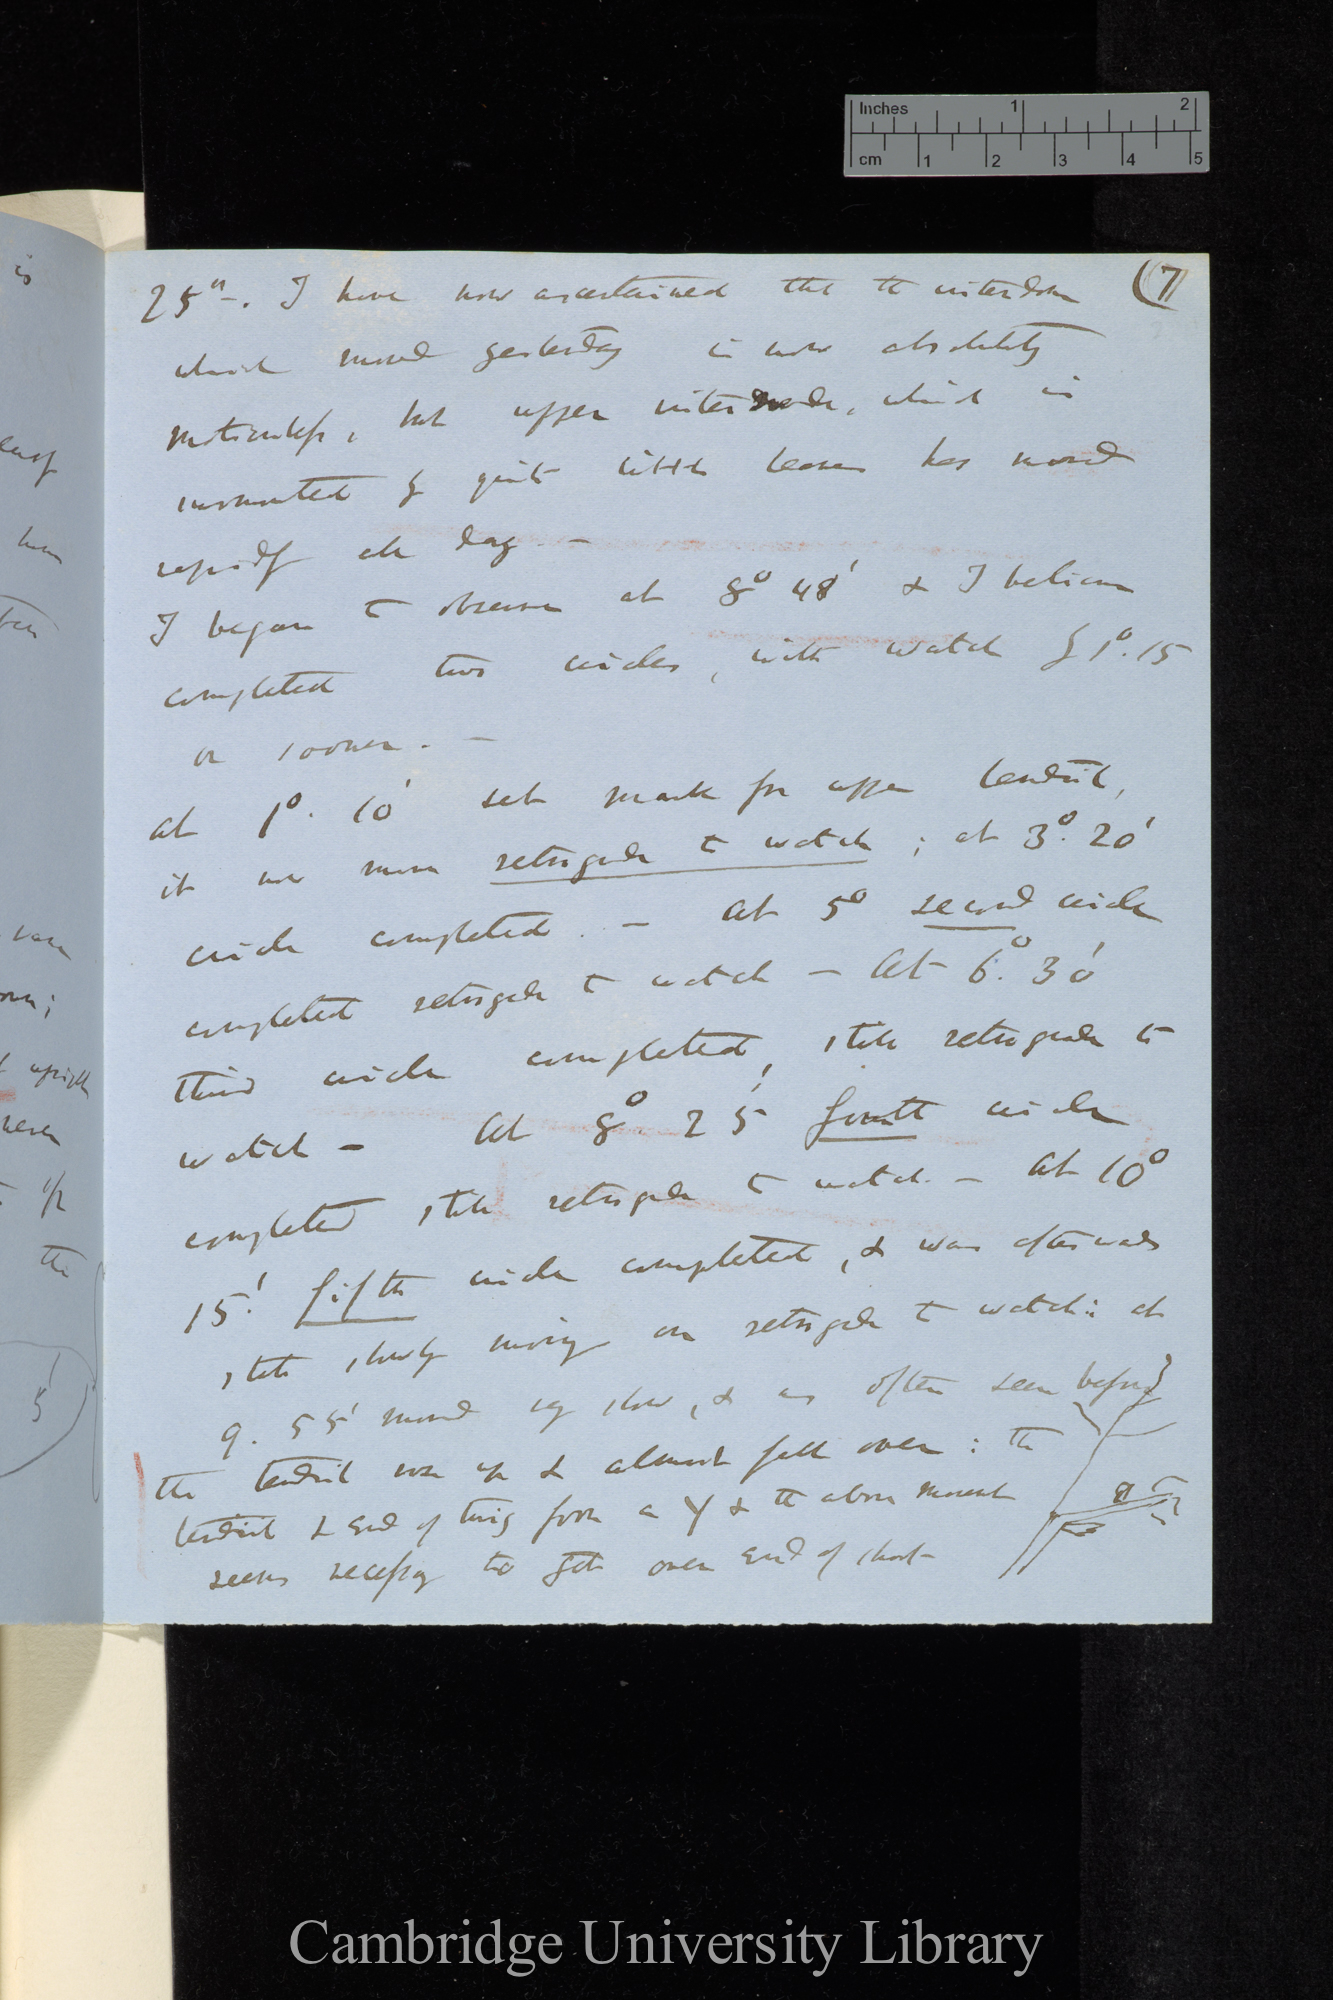 Inches 1 2
cm 1 2 3 4 5
(7)
25th. I have now ascertained that the internode
which moved yesterday is now absolutely
motionless, but upper internode, which is
surmounted by quite little leaves has moved
rapidly all day. —
I began to observe at 8° 48' & I believe
completed two circles, with watch by 1°.15
or sooner. —
at 1°. 10' set mark for upper tendril,
it now moves retrograde to watch; at 3°. 20'
circle completed. — At 5° second circle
completed retrograde to watch — At 6°. 30'
third circle completed, still retrograde to
watch — At 8°. 25' fourth circle
completed still retrograde to watch. — At 10°
15'. fifth circle completed, & was afterwards
still slowly moving on retrograde to watch: at
9. 55' moved very slow, & as often seen before
the tendril was up & almost fell over: the
tendril & end of twig form a Y & the above movement
seems necessary to get over end of shoot —
is
have
the
5'
Cambridge University Library